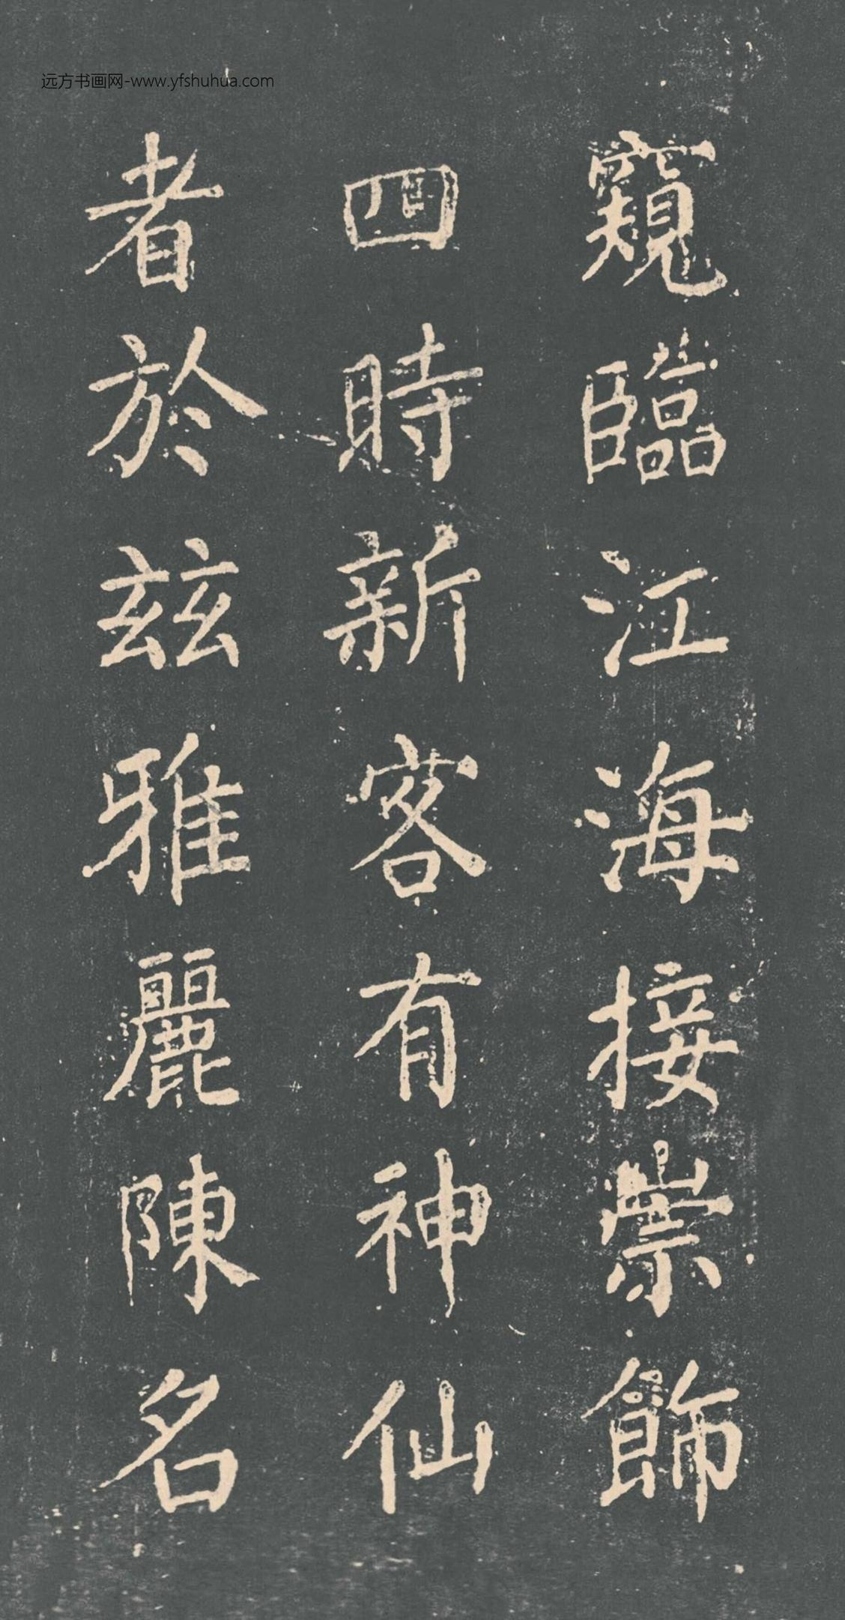 远方书画网-www.yfshuhua.com
窺臨江海接崇飾
四時新客有神仙
者於兹雅麗陳名